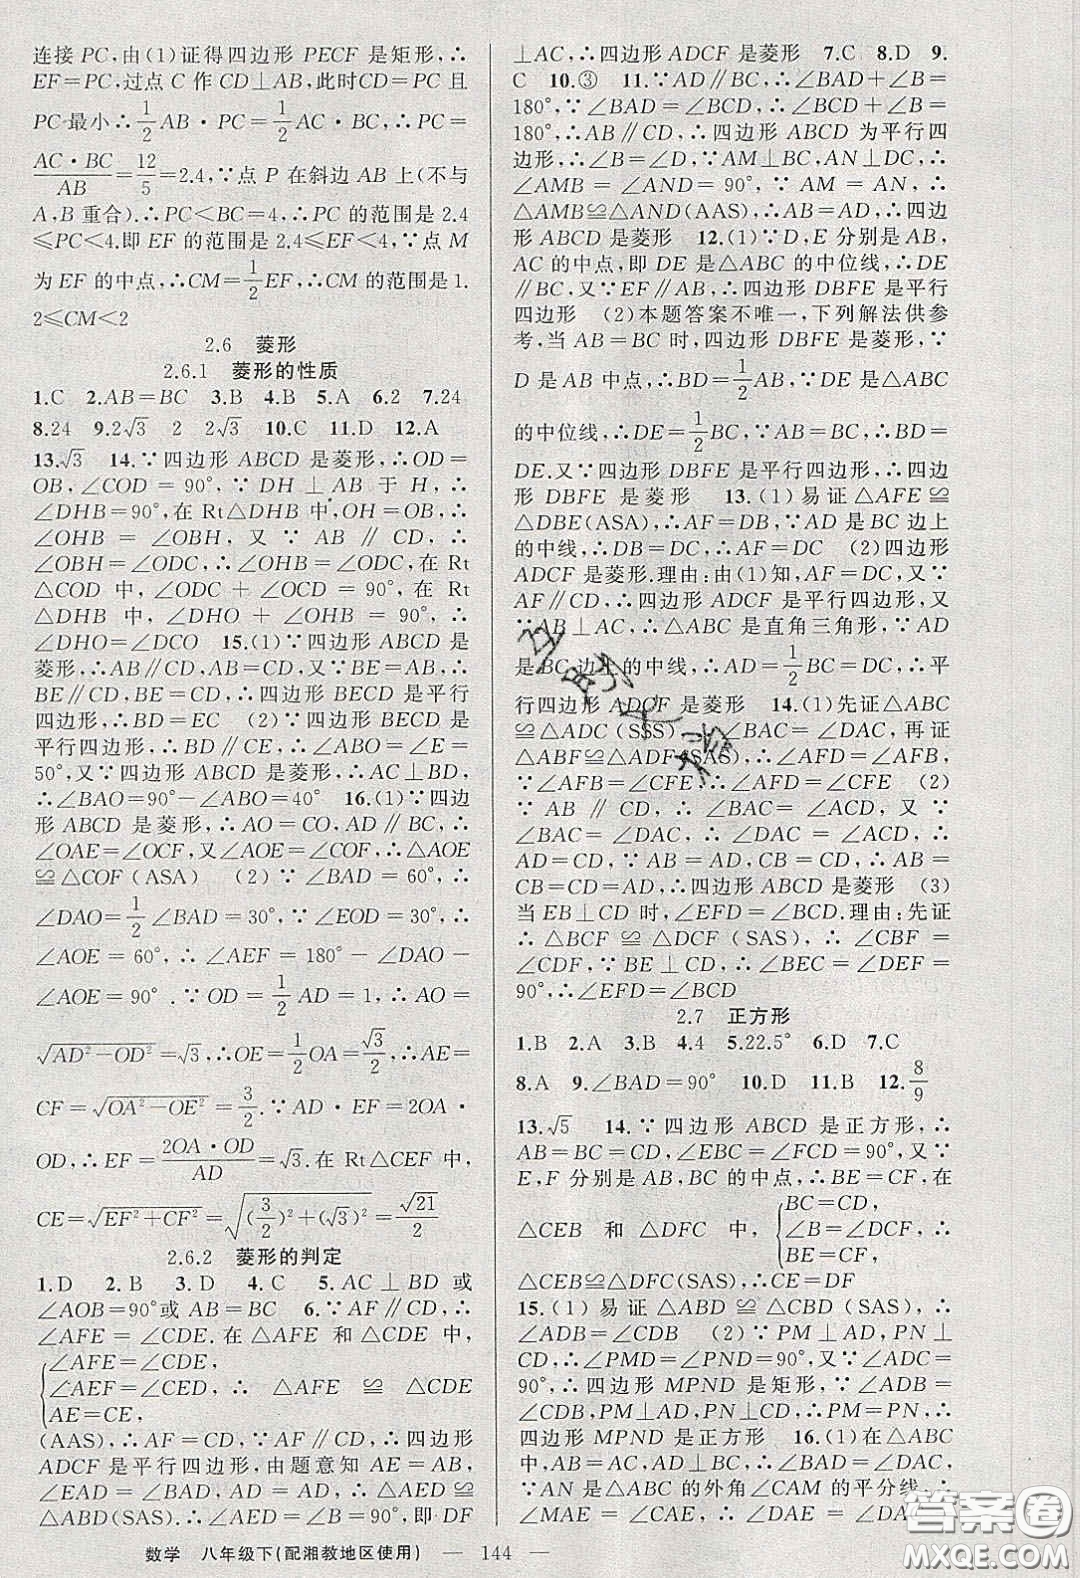 连接 PC,由(1)证得四边形 PECF 是矩形,∴
EF=PC,过点 C 作 CD⊥AB,此时CD=PC 且
PC 最小∴1/2 AB·PC=1/2 AC·BC,∴PC=
AC·BC/AB=12/5=2.4,∵点 P 在斜边 AB 上(不与
A,B 重合).∴PC<BC=4,∴PC 的范围是 2.4
≤PC<4.即 EF 的范围是 2.4≤EF<4,∵点 M
为 EF 的中点,∴CM=1/2 EF,∴CM 的范围是 1.
2≤CM<2
2.6 菱形
2.6.1 菱形的性质
1.C 2.AB=BC 3.B 4.B 5.A 6.2 7.24
8.24 9.2√3 2 2√3 10.C 11.D 12.A
13.√3 14.∵四边形 ABCD 是菱形,∴OD=
OB,∠COD=90°,∵DH⊥AB 于 H,∴
∠DHB=90°,在 Rt△DHB 中,OH=OB,∴
∠OHB=∠OBH,又∵AB∥CD,∴
∠OBH=∠ODC,∴∠OHB=∠ODC,在 Rt
△COD 中,∠ODC+∠OCD=90°,在 Rt
△DHB 中,∠DHO+∠OHB=90°,∴
∠DHO=∠DCO 15.(1)∵四边形 ABCD 是
菱形,∴AB∥CD,AB=CD.又∵BE=AB,∴
BE∥CD,BE=CD,∴四边形 BECD 是平行
四边形,∴BD=EC (2)∵四边形 BECD 是
平行四边形,∴BD∥CE,∴∠ABO=∠E=
50°,又∵四边形 ABCD 是菱形,∴AC⊥BD,
∴∠BAO=90°-∠ABO=40° 16.(1)∵四边
形 ABCD 是菱形,∴AO=CO,AD∥BC,∴
∠OAE=∠OCF,又∠AOE=∠COF,∴△AOE
≌△COF(ASA) (2)∵∠BAD=60°,∴
∠DAO=1/2∠BAD=30°,∵∠EOD=30°,∴
∠AOE=60°,∴∠AEF=180°-∠DAO-
∠AOE=90°.∵OD=1/2 AD=1,∴AO=
√(AD²-OD²)=√3,∴OE=1/2 OA=√3/2,∴AE=
CF=√(OA²-OE²)=3/2.∵AD·EF=2OA·
OD,∴EF=2OA·OD/AD=√3.在 Rt△CEF 中,
CE=√(EF²+CF²)=√((3/2)²+(√3)²)=√21/2
2.6.2 菱形的判定
1.D 2.B 3.D 4.C 5.AC⊥BD 或
∠AOB=90°或 AB=BC 6.∵AF∥CD,∴
∠AFE=∠CDE.在△AFE 和△CDE 中,
∠AFE=∠CDE,
∠AEF=∠CED, ∴△AFE≌△CDE
AE=CE,
(AAS),∴AF=CD,∵AF∥CD,∴四边形
ADCF 是平行四边形,由题意知 AE=AB,
∠EAD=∠BAD,AD=AD,∴△AED≌
△ABD(SAS).∴∠AED=∠B=90°,即 DF
⊥AC,∴四边形 ADCF 是菱形 7.C 8.D 9.
C 10.③ 11.∵AD∥BC,∴∠BAD+∠B=
180°,∵∠BAD=∠BCD,∴∠BCD+∠B=
180°,∴AB∥CD,∴四边形 ABCD 为平行四
边形,∴∠B=∠D,∵AM⊥BC,AN⊥DC,∴
∠AMB=∠AND=90°,∵AM=AN,∴
△AMB≌△AND(AAS),∴AB=AD,∴四边
形 ABCD 是菱形 12.(1)∵D,E 分别是 AB,
AC 的中点,即 DE 是△ABC 的中位线,∴DE
∥BC,又∵EF∥AB,∴四边形 DBFE 是平行
四边形 (2)本题答案不唯一,下列解法供参
考,当 AB=BC 时,四边形 DBFE 是菱形,∵
D 是 AB 中点,∴BD=1/2 AB,∵DE 是△ABC
的中位线,∴DE=1/2 BC,∵AB=BC,∴BD=
DE.又∵四边形 DBFE 是平行四边形,∴四边
形 DBFE 是菱形 13.(1)易证△AFE≌
△DBE(ASA),∴AF=DB,∵AD 是 BC 边上
的中线,∴DB=DC,∴AF=DC (2)四边形
ADCF 是菱形.理由:由(1)知,AF=DC,∵
AF∥CD,∴四边形 ADCF 是平行四边形,又
∵AB⊥AC,∴△ABC 是直角三角形,∵AD
是 BC 边上的中线,∴AD=1/2 BC=DC,∴平
行四边形 ADCF 是菱形 14.(1)先证△ABC
≌△ADC(SSS),∴∠BAC=∠DAC,再证
△ABF≌△ADF(SAS),∴∠AFD=∠AFB,
∵∠AFB=∠CFE,∴∠AFD=∠CFE (2)
∵AB∥CD,∴∠BAC=∠ACD,又∵
∠BAC=∠DAC,∴∠DAC=∠ACD,∴
AD=CD,∵AB=AD,CB=CD,∴AB=
CB=CD=AD,∴四边形 ABCD 是菱形 (3)
当 EB⊥CD 时,∠EFD=∠BCD.理由:先证
∴△BCF≌△DCF(SAS),∴∠CBF=
∠CDF,∵BE⊥CD,∴∠BEC=∠DEF=
90°,∴∠EFD=∠BCD
2.7 正方形
1.B 2.A 3.B 4.4 5.22.5° 6.D 7.C
8.A 9.∠BAD=90° 10.D 11.B 12.8/9
13.√5 14.∵四边形 ABCD 是正方形,∴
AB=BC=CD,∠EBC=∠FCD=90°,又∵
E,F 分别是 AB,BC 的中点,∴BE=CF,在
BC=CD,
△CEB 和△DFC 中, ∠B=∠DCF,∴
BE=CF,
△CEB≌△DFC(SAS),∴CE=DF
15.(1)易证△ABD≌△CBD(SAS),∴
∠ADB=∠CDB (2)∵PM⊥AD,PN⊥
CD,∴∠PMD=∠PND=90°,又∵∠ADC=
90°,∴四边形 MPND 是矩形,∵∠ADB=
∠CDB,PM⊥AD,PN⊥CD,∴PM=PN,∴
四边形 MPND 是正方形 16.(1)在△ABC
中,∵AB=AC,AD⊥BC,∴∠BAD=∠DAC,
∵AN 是△ABC 的外角∠CAM 的平分线,∴
∠MAE=∠CAE,∴∠DAE=∠DAC+
数学 八年级下(配湘教地区使用) — 144 —
答案圈